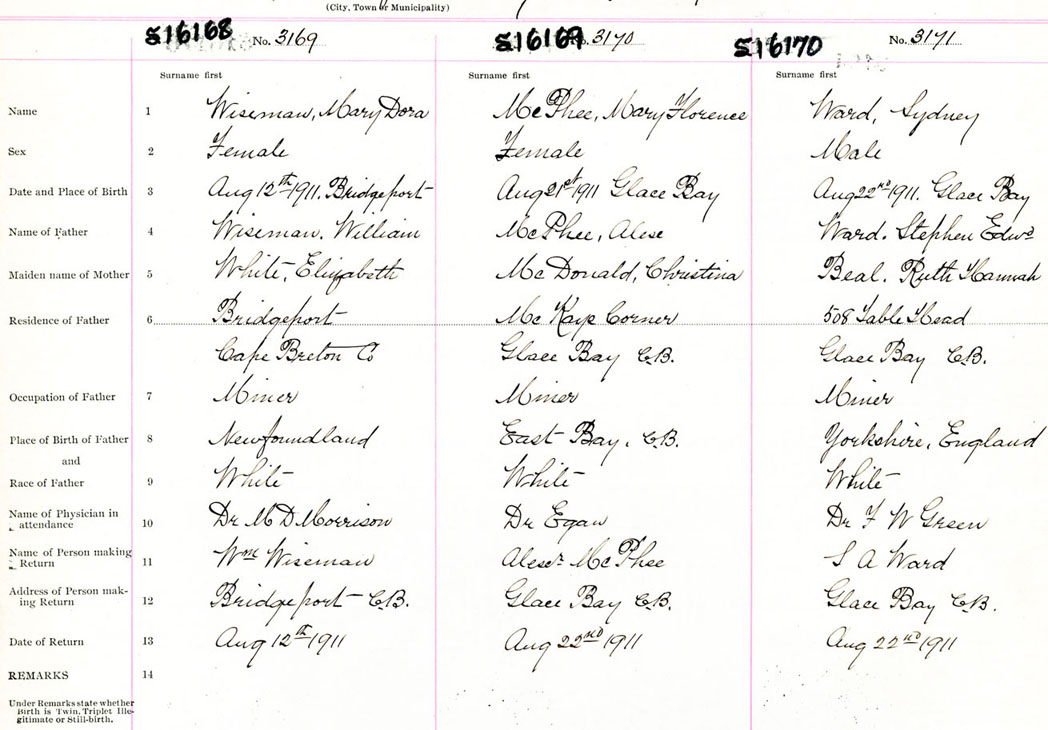 (City, Town or Municipality)
S16168 No. 3169 S16169 No. 3170 S16170 No. 3171
Surname first Surname first Surname first
Name 1 Wiseman, Mary Dora McPhee, Mary Florence Ward, Sydney
Sex 2 Female Female Male
Date and Place of Birth 3 Aug 12th 1911. Bridgeport Aug 21st 1911 Glace Bay Aug 22nd 1911. Glace Bay
Name of Father 4 Wiseman. William McPhee, Alex Ward. Stephen Edwd
Maiden name of Mother 5 White, Elizabeth McDonald, Christina Beal. Ruth Hannah
Residence of Father 6 Bridgeport McKays Corner 508 Table Head
Cape Breton Co Glace Bay C.B. Glace Bay C.B.
Occupation of Father 7 Miner Miner Miner
Place of Birth of Father 8 Newfoundland East Bay, C.B. Yorkshire, England
and
Race of Father 9 White White White
Name of Physician in
attendance 10 Dr M D Morrison Dr Egan Dr F W Green
Name of Person making
Return 11 Wm Wiseman Alexr McPhee S A Ward
Address of Person mak-
ing Return 12 Bridgeport C.B. Glace Bay C.B. Glace Bay C.B.
Date of Return 13 Aug 12th 1911 Aug 22nd 1911 Aug 22nd 1911
REMARKS 14
Under Remarks state whether
Birth is Twin, Triplet Ille-
gitimate or Still-birth.